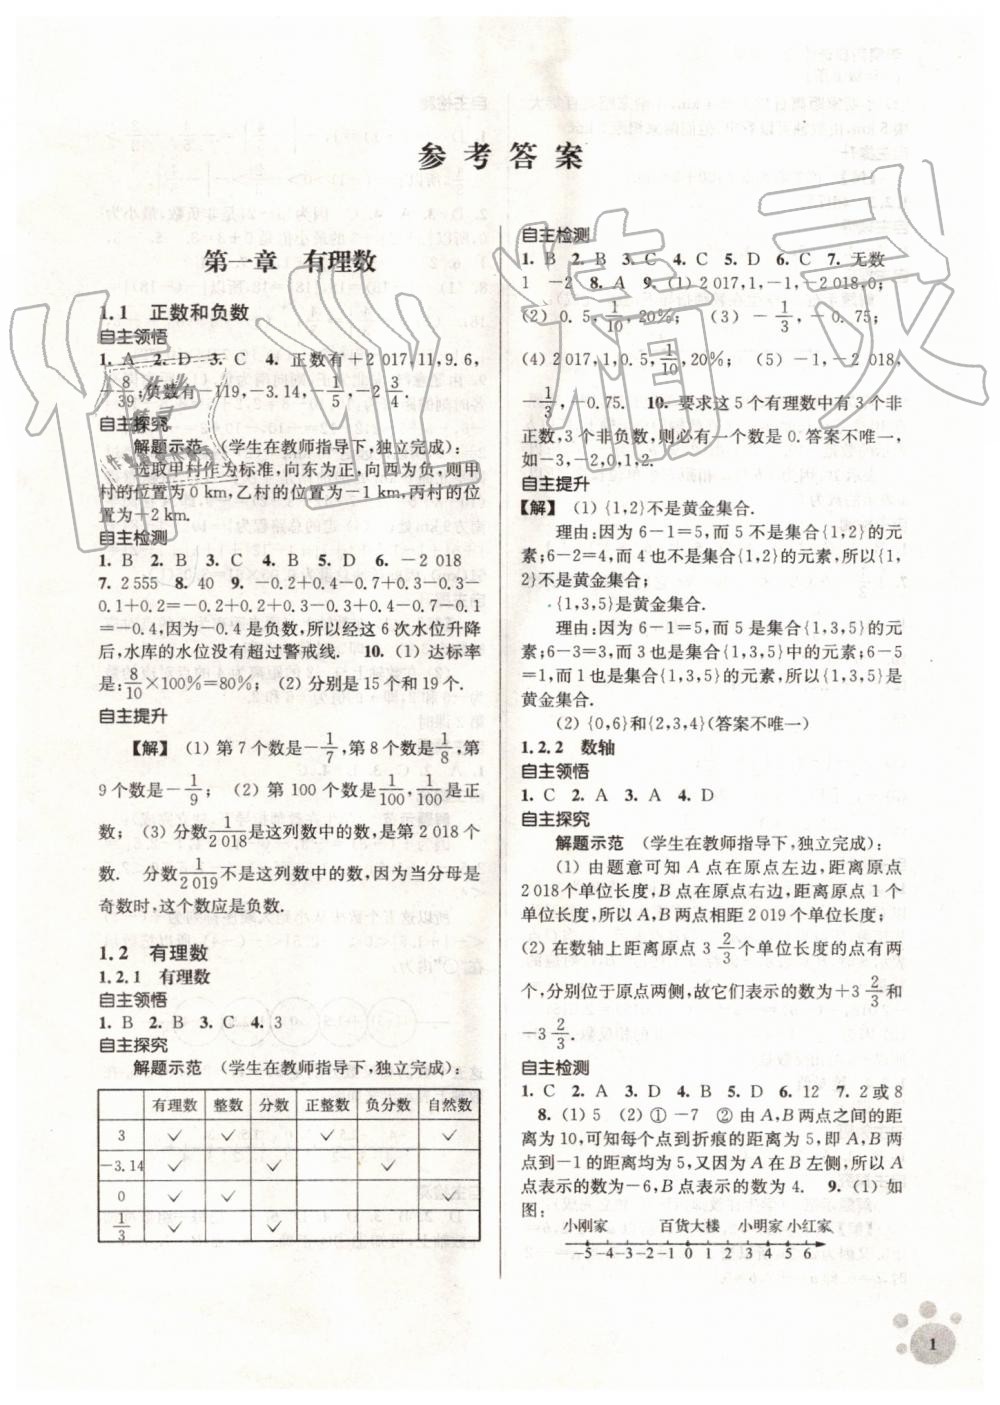 参考答案
第一章 有理数
1.1 正数和负数
自主领悟
1. A 2. D 3. C 4. 正数有+2 017,11,9.6,
-8/39;负数有-119,-3.14,-1/5,-2 3/4.
自主探究
解题示范 (学生在教师指导下,独立完成):
选取甲村作为标准,向东为正,向西为负,则甲
村的位置为0 km,乙村的位置为-1 km,丙村的位
置为+2 km.
自主检测
1. B 2. B 3. C 4. B 5. D 6. -2 018
7. 2 555 8. 40 9. -0.2+0.4-0.7+0.3-0.3-
0.1+0.2=-0.2+0.4+0.3+0.2-0.7-0.3-0.1
=-0.4,因为-0.4是负数,所以经这6次水位升降
后,水库的水位没有超过警戒线. 10. (1) 达标率
是:8/10×100%=80%; (2) 分别是15个和19个.
自主提升
【解】 (1) 第7个数是-1/7,第8个数是1/8,第
9个数是-1/9; (2) 第100个数是1/100,1/100是正
数; (3) 分数1/2 018是这列数中的数,是第2 018个
数. 分数1/2 019不是这列数中的数,因为当分母是
奇数时,这个数应是负数.
1.2 有理数
1.2.1 有理数
自主领悟
1. B 2. B 3. C 4. 3
自主探究
解题示范 (学生在教师指导下,独立完成):
有理数 整数 分数 正整数 负分数 自然数
3 ✓ ✓ ✓ ✓
-3.14 ✓ ✓ ✓
0 ✓ ✓ ✓
1/3 ✓ ✓
自主检测
1. B 2. B 3. C 4. C 5. D 6. C 7. 无数
1 -2 8. A 9. (1) 2 017,1,-1,-2 018,0;
(2) 0.5,1/10,20%; (3) -1/3,-0.75;
(4) 2 017,1,0.5,1/10,20%; (5) -1,-2 018,
-1/3,-0.75. 10. 要求这5个有理数中有3个非
正数,3个非负数,则必有一个数是0.答案不唯一,
如-3,-2,0,1,2.
自主提升
【解】 (1) {1,2}不是黄金集合.
理由:因为6-1=5,而5不是集合{1,2}的元
素;6-2=4,而4也不是集合{1,2}的元素,所以{1,
2}不是黄金集合;
{1,3,5}是黄金集合.
理由:因为6-1=5,而5是集合{1,3,5}的元素;
6-3=3,而3也是集合{1,3,5}中的元素;6-5
=1,而1也是集合{1,3,5}的元素,所以{1,3,5}是
黄金集合.
(2) {0,6}和{2,3,4}(答案不唯一)
1.2.2 数轴
自主领悟
1. C 2. A 3. A 4. D
自主探究
解题示范 (学生在教师指导下,独立完成):
(1) 由题意可知A点在原点左边,距离原点
2 018个单位长度,B点在原点右边,距离原点1个
单位长度,所以A,B两点相距2 019个单位长度;
(2) 在数轴上距离原点3 2/3个单位长度的点有两
个,分别位于原点两侧,故它们表示的数为+3 2/3和
-3 2/3.
自主检测
1. C 2. A 3. D 4. B 5. D 6. 12 7. 2或8
8. (1) 5 (2) ① -7 ② 由A,B两点之间的距
离为10,可知每个点到折痕的距离为5,即A,B两
点到-1的距离均为5,又因为A在B左侧,所以A
点表示的数为-6,B点表示的数为4. 9. (1) 如
图:
小刚家 百货大楼 小明家 小红家
-5 -4 -3 -2 -1 0 1 2 3 4 5 6
1